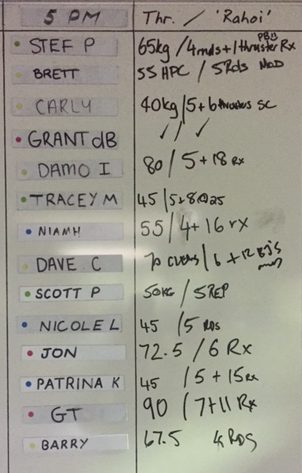 5 PM Thr. / 'Rahoi'
STEF P 65kg / 4rnds + 1 thruster Rx PB
BRETT 55 HPC / 5 Rds MOD
CARLY 40kg / 5+6 thrusters SC
GRANT dB
DAMO I 80 / 5+18 Rx
TRACEY M 45 / 5+8@25
NIAMH 55 / 4+16 rx
DAVE C 70 / 6+12 BJ's
SCOTT P 50KG / 5 REP
NICOLE L 45 / 5 RDS
JON 72.5 / 6 Rx
PATRINA K 45 / 5+15 Rx
GT 90 / 7+11 Rx
BARRY 67.5 4 RDS